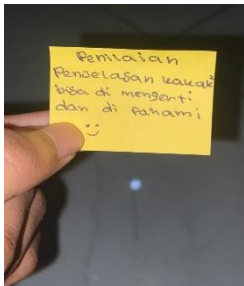 Penilaian
Penjelasan kakak²
bisa di mengerti
dan di pahami